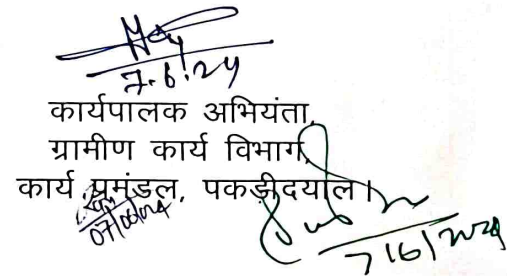 7.6.24
कार्यपालक अभियंता,
ग्रामीण कार्य विभाग,
कार्य प्रमंडल, पकड़ीदयाल।
07/06/24
7/6/2024